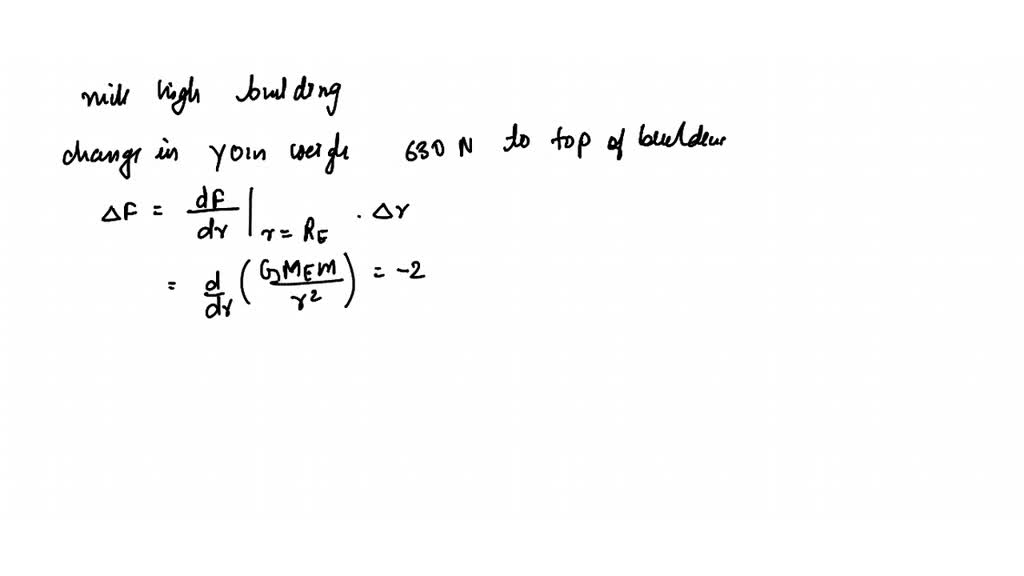 mile high building
change in your weigh 630 N to top of building
ΔF = dF/dr |r = RE . Δr
= d/dr (GMEm/r²) = -2